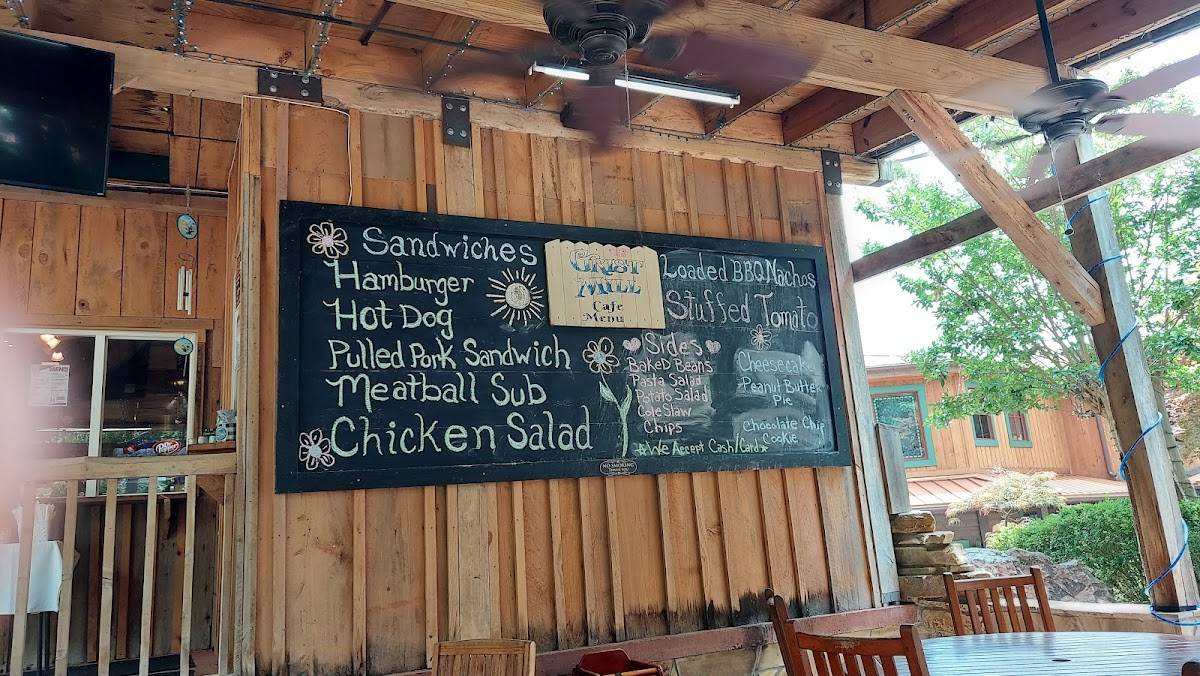 Sandwiches
Hamburger
Hot Dog
Pulled Pork Sandwich
Meatball Sub
Chicken Salad
GRIST
MILL
Cafe
Menu
Loaded BBQ Nachos
Stuffed Tomato
Sides
Baked Beans
Pasta Salad
Potato Salad
Cole Slaw
Chips
Cheesecake
Peanut Butter
Pie
Chocolate Chip
Cookie
*We Accept Cash/Card*
NO SMOKING
Dr Pepper